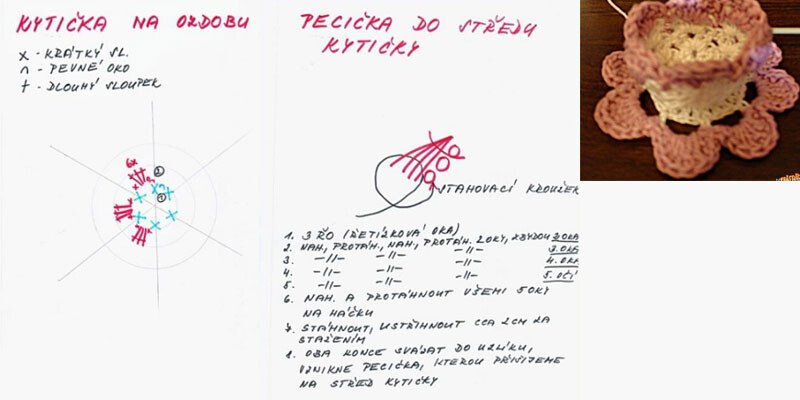 KYTIČKA NA OZDOBU
x - KRÁTKÝ SL.
∩ - PEVNÉ OKO
† - DLOUHÝ SLOUPEK
6x
2
1
PECIČKA DO STŘEDU
KYTIČKY
STAHOVACÍ KROUŽEK
1. 3 ŘO (ŘETÍZKOVÁ OKA)
2. NAH, PROTÁH, NAH, PROTÁH. 2OKY, ZBYDOU 2 OKA
3. -//- -//- -//- 3. OKA
4. -//- -//- -//- 4. OKA
5. -//- -//- -//- 5. OČÍ
6. NAH. A PROTÁHNOUT VŠEMI 5 OKY
NA HÁČKU
7. STÁHNOUT, USTŘIHNOUT CCA 2CM ZA
STAŽENÍM
8. OBA KONCE SVÁZAT DO UZLÍKU,
VZNIKNE PECIČKA, KTEROU PŘIŠIJEME
NA STŘED KYTIČKY